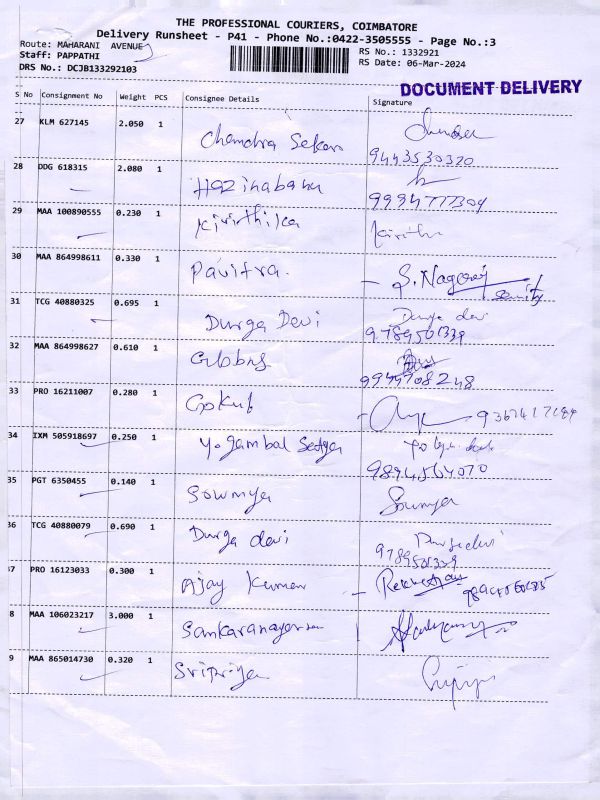 THE PROFESSIONAL COURIERS, COIMBATORE
Delivery Runsheet - P41 - Phone No.:0422-3505555 - Page No.:3
Route: MAHARANI AVENUE
RS No.: 1332921
Staff: PAPPATHI
RS Date: 06-Mar-2024
DRS No.: DCJB133292103
DOCUMENT DELIVERY
S No Consignment No Weight PCS Consignee Details Signature
27 KLM 627145 2.050 1 Chandra Sekar
9443530320
28 DDG 618315 2.080 1
9994777304
29 MAA 100890555 0.230 1 Kirithika
30 MAA 864998611 0.330 1 Pavitra. - S. Nagaraj
Security
31 TCG 40880325 0.695 1 Durga Devi Durga devi
9789501339
32 MAA 864998627 0.610 1
9944708248
33 PRO 16211007 0.280 1 Gokul
34 IXM 505918697 0.250 1 Yogambal
9894564070
35 PGT 6350455 0.140 1 Sowmya Sowmya
36 TCG 40880079 0.690 1 Durga devi Durga devi
9789501339
37 PRO 16123033 0.300 1 Ajay Kumar
8 MAA 106023217 3.000 1
9 MAA 865014730 0.320 1 Sripriya